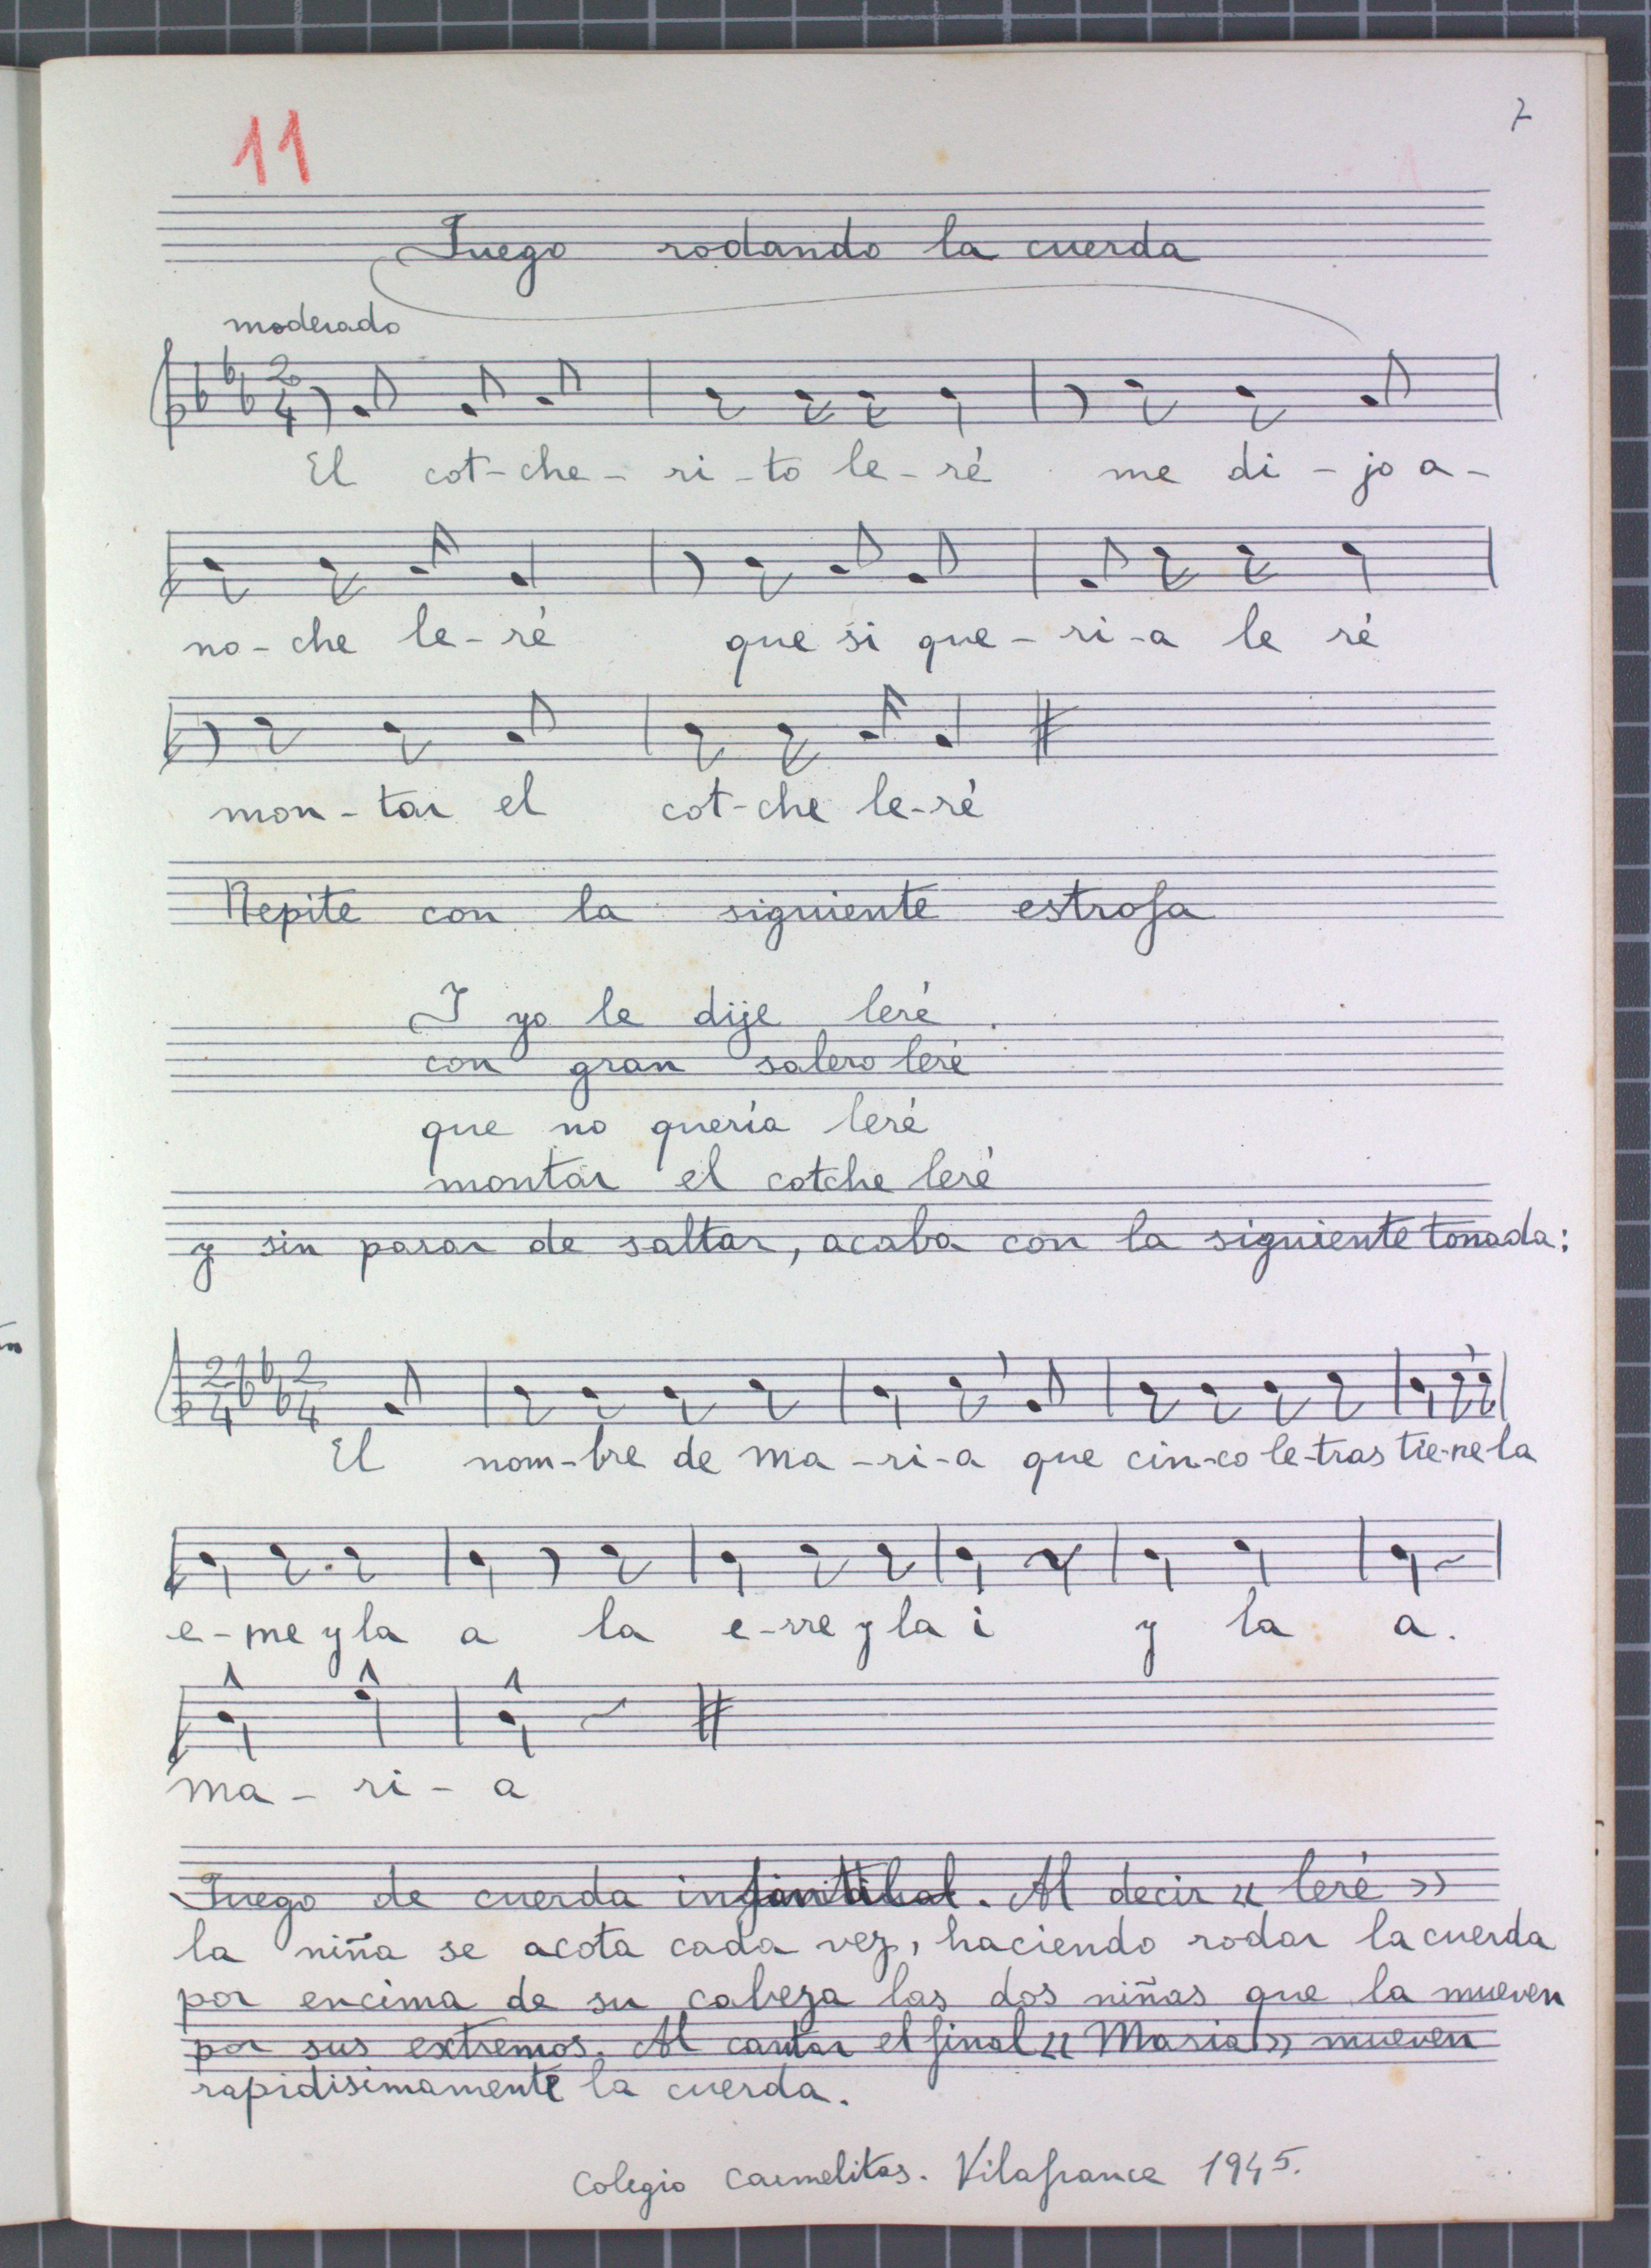 7
11
Juego rodando la cuerda
moderado
2
4
El cot-che-ri-to le-ré me di-jo a-
no-che le-ré que si que-ri-a le ré
mon-tar el cot-che le-ré
Repite con la siguiente estrofa
I yo le dije leré.
con gran salero leré
que no quería leré
montar el cotche leré
y sin parar de saltar, acaba con la siguiente tonada:
2 2
4 4
El nom-bre de ma-ri-a que cin-co le-tras tie-ne-la
e-me y la a la e-rre y la i y la a.
ma-ri-a
Juego de cuerda . Al decir « leré »
la niña se acota cada vez, haciendo rodar la cuerda
por encima de su cabeza las dos niñas que la mueven
por sus extremos. Al cantar el final « Maria » mueven
rapidisimamente la cuerda.
Colegio Carmelitas. Vilafranca 1945.